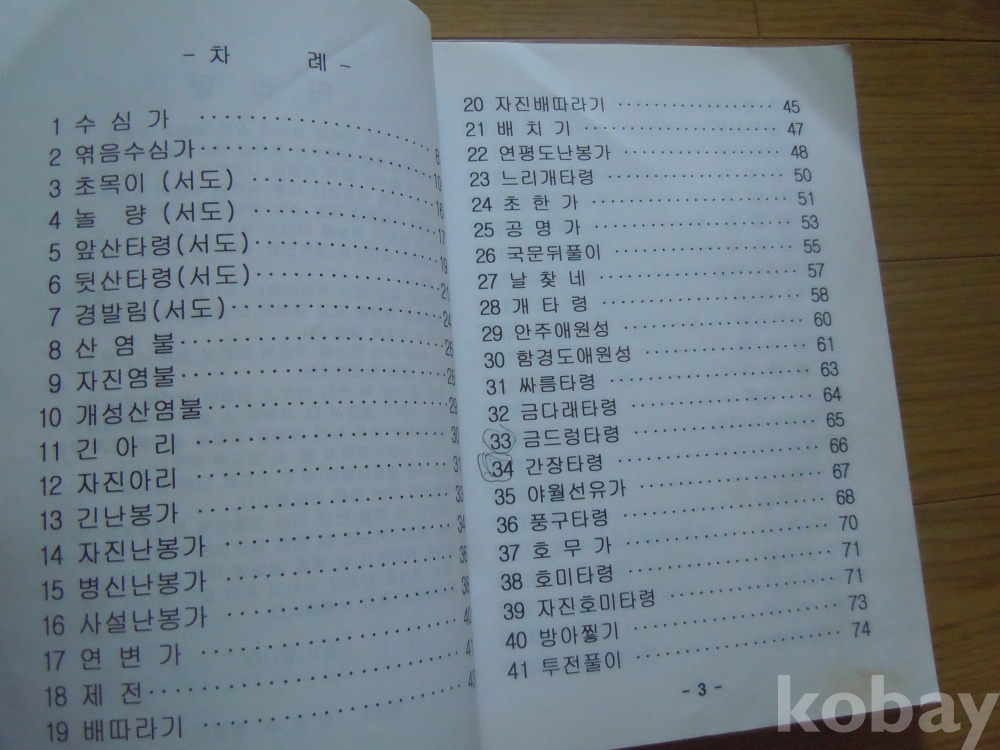 - 차 례 -
1 수 심 가 ················ 8
2 엮음수심가 ················ 10
3 초목이 (서도) ················ 16
4 놀 량 (서도) ················ 17
5 앞산타령(서도) ················ 19
6 뒷산타령(서도) ················ 21
7 경발림(서도) ················ 24
8 산 염 불 ················ 26
9 자진염불 ················ 28
10 개성산염불 ················ 29
11 긴 아 리 ················ 30
12 자진아리 ················ 31
13 긴난봉가 ················ 33
14 자진난봉가 ················ 34
15 병신난봉가 ················ 36
16 사설난봉가 ················ 38
17 연 변 가 ················ 40
18 제 전 ················ 41
19 배따라기 ················ 43
20 자진배따라기 ················ 45
21 배 치 기 ················ 47
22 연평도난봉가 ················ 48
23 느리개타령 ················ 50
24 초 한 가 ················ 51
25 공 명 가 ················ 53
26 국문뒤풀이 ················ 55
27 날 찾 네 ················ 57
28 개 타 령 ················ 58
29 안주애원성 ················ 60
30 함경도애원성 ················ 61
31 싸름타령 ················ 63
32 금다래타령 ················ 64
33 금드렁타령 ················ 65
34 간장타령 ················ 66
35 야월선유가 ················ 67
36 풍구타령 ················ 68
37 호 무 가 ················ 70
38 호미타령 ················ 71
39 자진호미타령 ················ 71
40 방아찧기 ················ 73
41 투전풀이 ················ 74
- 3 -
kobay